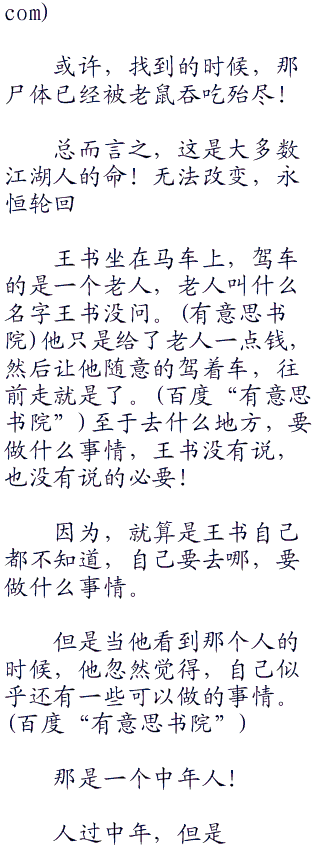 com)
或许，找到的时候，那
尸体已经被老鼠吞吃殆尽！
总而言之，这是大多数
江湖人的命！无法改变，永
恒轮回
王书坐在马车上，驾车
的是一个老人，老人叫什么
名字王书没问。(有意思书
院)他只是给了老人一点钱，
然后让他随意的驾着车，往
前走就是了。(百度“有意思
书院”)至于去什么地方，要
做什么事情，王书没有说，
也没有说的必要！
因为，就算是王书自己
都不知道，自己要去哪，要
做什么事情。
但是当他看到那个人的
时候，他忽然觉得，自己似
乎还有一些可以做的事情。
(百度“有意思书院”)
那是一个中年人！
人过中年，但是